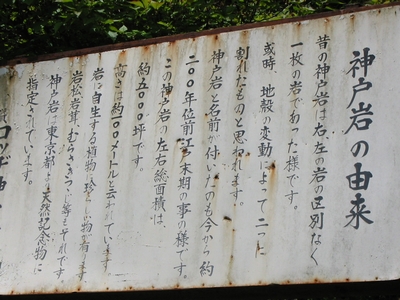 神戸岩の由来
昔の神戸岩は右左の岩の区別なく
一枚の岩であった様です。
或時、地殻の変動によって二つに
割れたものと思われます。
神戸岩と名前が付いたのも今から約
二〇〇年位前江戸末期の事の様です。
この神戸岩の左右総面積は、
約五〇〇〇坪です。
高さは約一〇〇メートルと云われています
岩に自生する植物で珍らしい物が有ります
岩松岩茸、むらさきつゝじ等もそれです。
神戸岩は東京都より天然記念物に
指定されています。